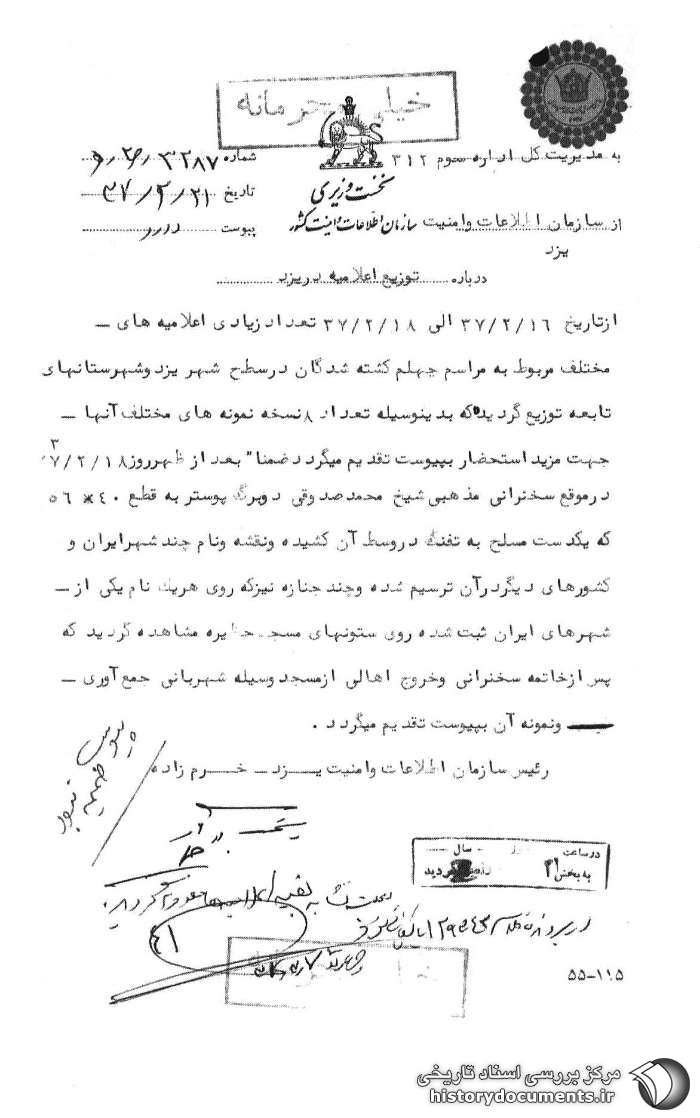 خیلی محرمانه
به مدیریت کل اداره سوم ۳۱۲
شماره ۳۲۸۷
نخست وزیری
تاریخ ۳۷/۲/۲۱
از سازمان اطلاعات وامنیت
یزد
سازمان اطلاعات و امنیت کشور
پیوست دارد
درباره توزیع اعلامیه در یزد
ازتاریخ ۳۷/۲/۱۶ الی ۳۷/۲/۱۸ تعداد زیادی اعلامیه های ـ
مختلف مربوط به مراسم چهلم کشته شدگان درسطح شهر یزد وشهرستانهای
تابعه توزیع گردید که بدینوسیله تعداد ۸ نسخه نمونه های مختلف آنها ـ
جهت مزید استحضار بپیوست تقدیم میگردد ضمنا" بعد از ظهرروز ۳۷/۲/۱۸
درموقع سخنرانی مذهبی شیخ محمد صدوقی دوبرگ پوستر به قطع ۴۰ * ۵۶
که یکدست مسلح به تفنگ دروسط آن کشیده ونقشه ونام چند شهرایران و
کشورهای دیگردرآن ترسیم شده وچند جنازه نیزکه روی هریك نام یکی از ـ
شهرهای ایران ثبت شده روی ستونهای مسجد حظیره مشاهده گردید که
پس ازخاتمه سخنرانی وخروج اهالی ازمسجد وسیله شهربانی جمع آوری ـ
ونمونه آن بپیوست تقدیم میگردد .
رئیس سازمان اطلاعات وامنیت یـزد ـ خـرم زاده
در ساعت روز سال
به بخش ۲۱ گردید
۴۱
۵۵-۱۱۵
مرکز بررسی اسناد تاریخی
historydocuments.ir